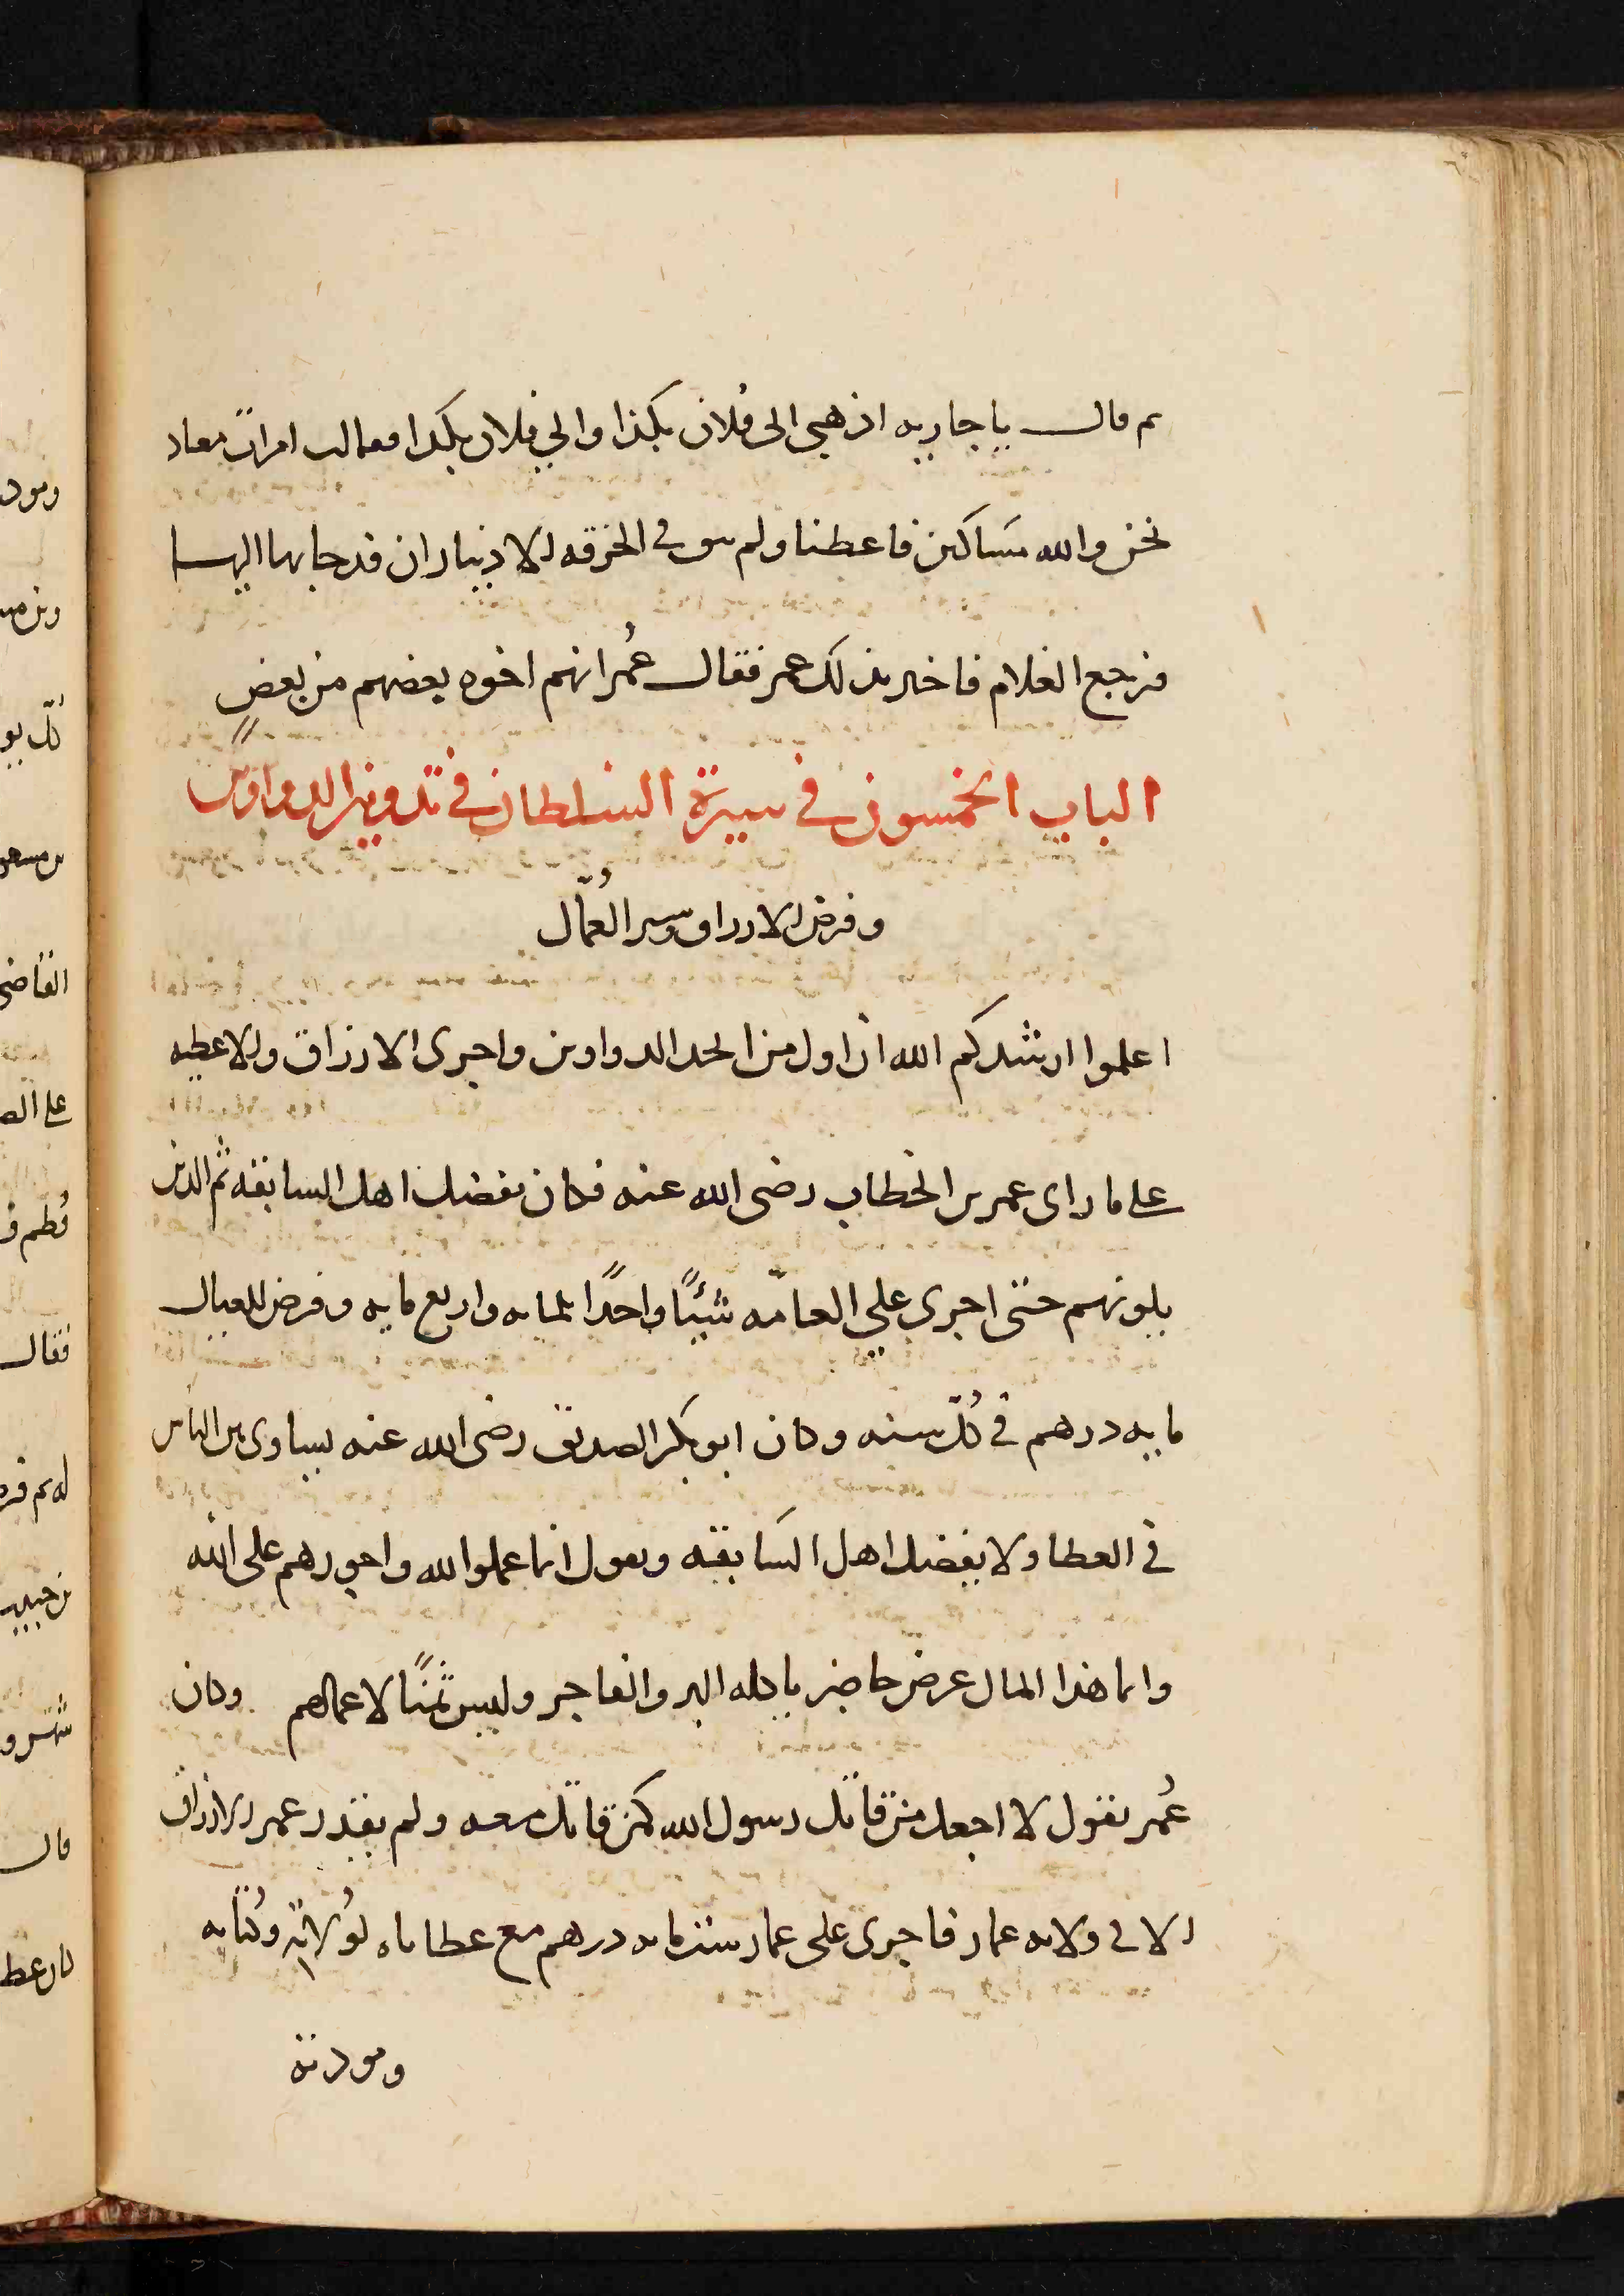 ثم قال يا جاريه اذهبي الى فُلان بكذا والي فلان بكذا فقالت امراة معاد
نحن والله مسَاكين فاعطنا ولم يبق في الخرقه الا ديناران فدحا بهما اليها
فرجع الغلام فاخبر بذلك عمر فقال عُمر انهم اخوه بعضهم من بعضٍ
الباب الخمسون في سيرة السلطان في تدوين الدواوين
وفرض الارزاق وسيرة العُمّال
اعلموا ارشدكم الله ان اول من اتخذ الدواوين واجرى الارزاق والاعطيه
على ما راى عمر بن الخطاب رضى الله عنه فكان يفضل اهل السابقه ثم الذين
يلونهم حتى اجرى علي العامّه شيئًا واحدًا ثلثمايه واربع مايه وفرض للعيال
مايه درهم في كُلّ سنه وكان ابو بكر الصديق رضى الله عنه يساوى بين الناس
في العطا ولا يفضل اهل السَابقه ويقول انما عملوا لله واجورهم على الله
وانما هذا المال عرض حاضر ياكله البر والفاجر وليس ثمنًا لاعمالهم وكان
عُمر يقول لا اجعل من قاتل رسول الله كمن قاتل معه ولم يقدر عمر الارزاق
الا في ولايه عمار فاجرى على عمار ستمايه درهم مع عطاياه لوُلاته وكُتابه
وموذنه
ومود
كُلّ يو
بن مسعو
القاضى
على الص
فُطم ف
فقال
له ثم فر
بن حبيب
قال
كان عطا